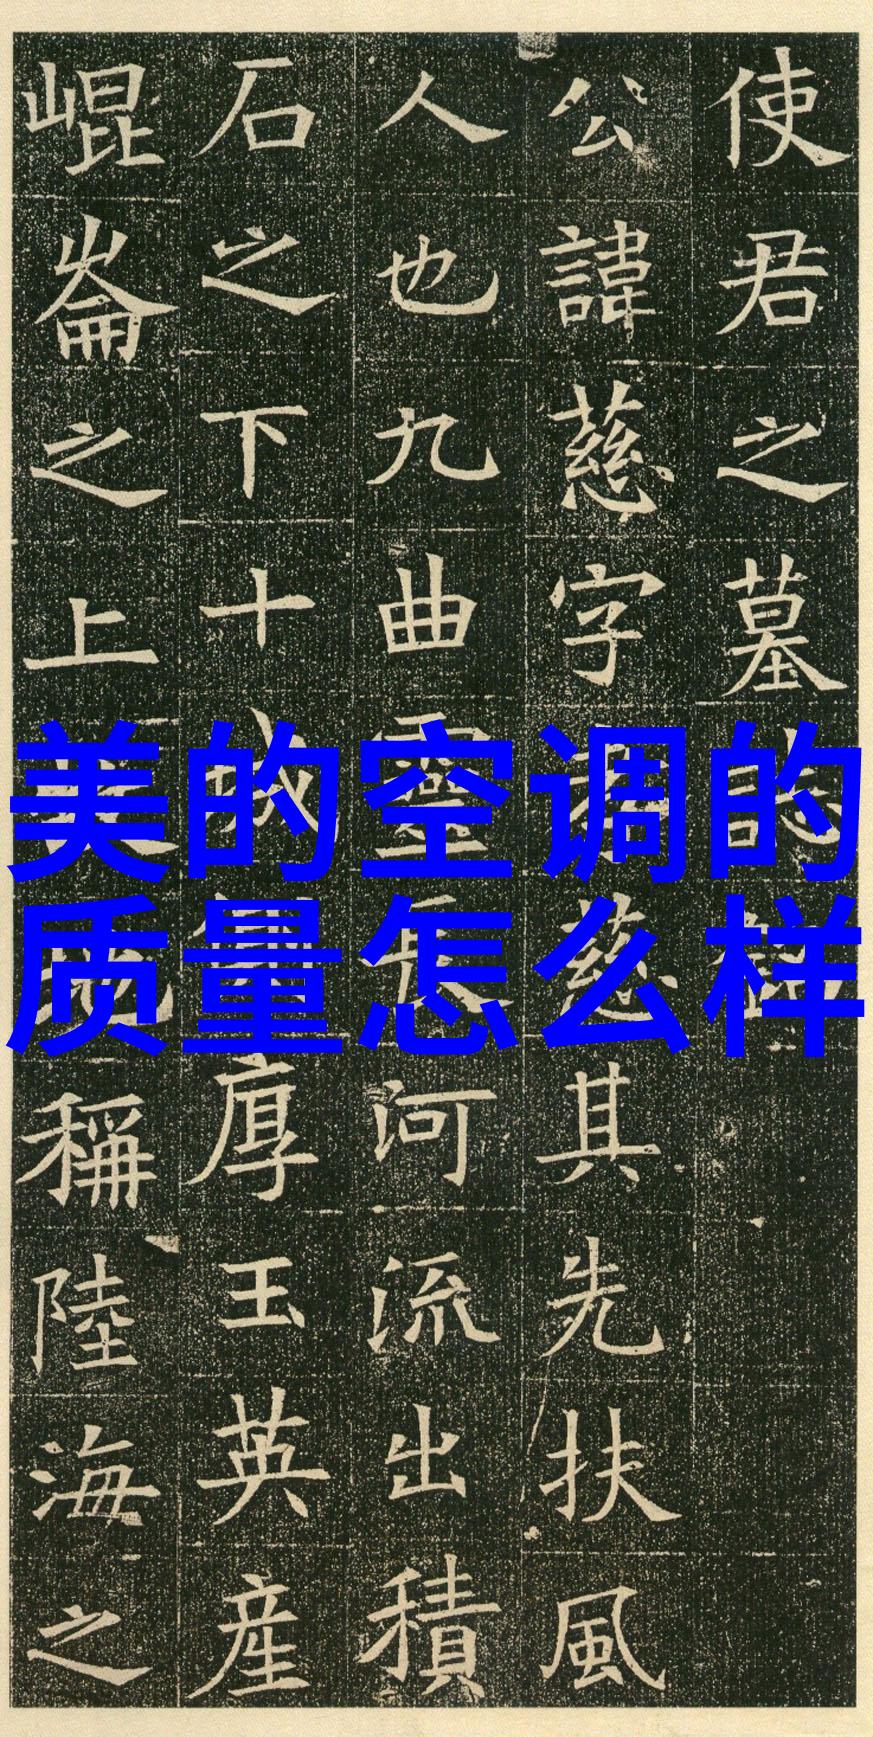 美的空调的
质量怎么样
使君之墓誌銘
公諱慈字孝慈其先扶風
人也九曲靈長河流出積
石之下十城厚玉英産
崐崙之上地稱陸海之